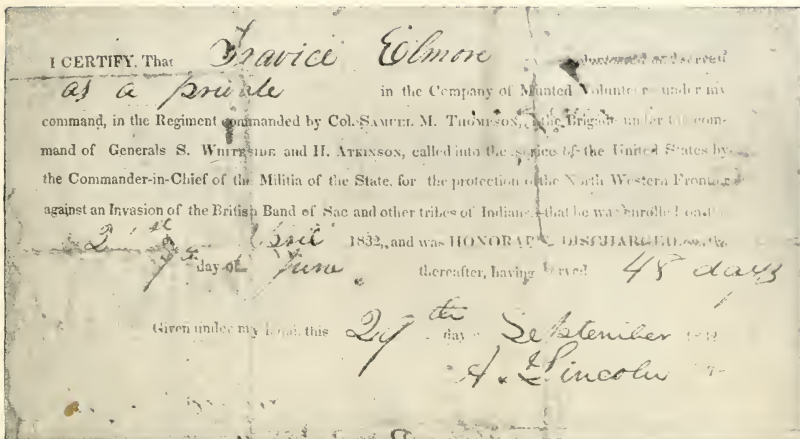 I CERTIFY, That Travice Elmore volunteered and served
as a private in the Company of Munted Volunteers under my
command, in the Regiment commanded by Col. SAMUEL M. THOMPSON, the Brigade under the com-
mand of Generals S. WHITESIDE and H. ATKINSON, called into the service of the United States by
the Commander-in-Chief of the Militia of the State, for the protection of the North Western Frontier
against an Invasion of the British Band of Sac and other tribes of Indians,—that he was enrolled on the
21st April 1832, and was HONORABLY DISCHARGED on the
7th day of June thereafter, having served 48 days
Given under my hand, this 27th day September
A. Lincoln